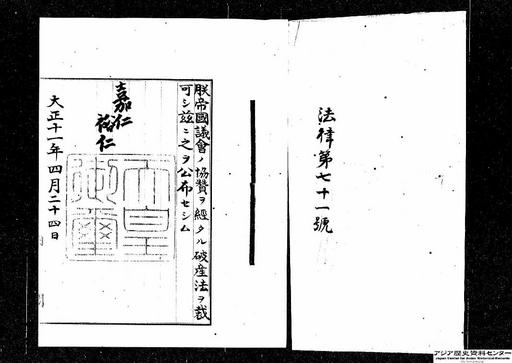 法律第七十一號
朕帝國議會ノ協贊ヲ經タル破產法ヲ裁
可シ茲ニ之ヲ公布セシム
嘉仁
裕仁
天皇御璽
大正十一年四月二十四日
アジア歴史資料センター
Japan Center for Asian Historical Records